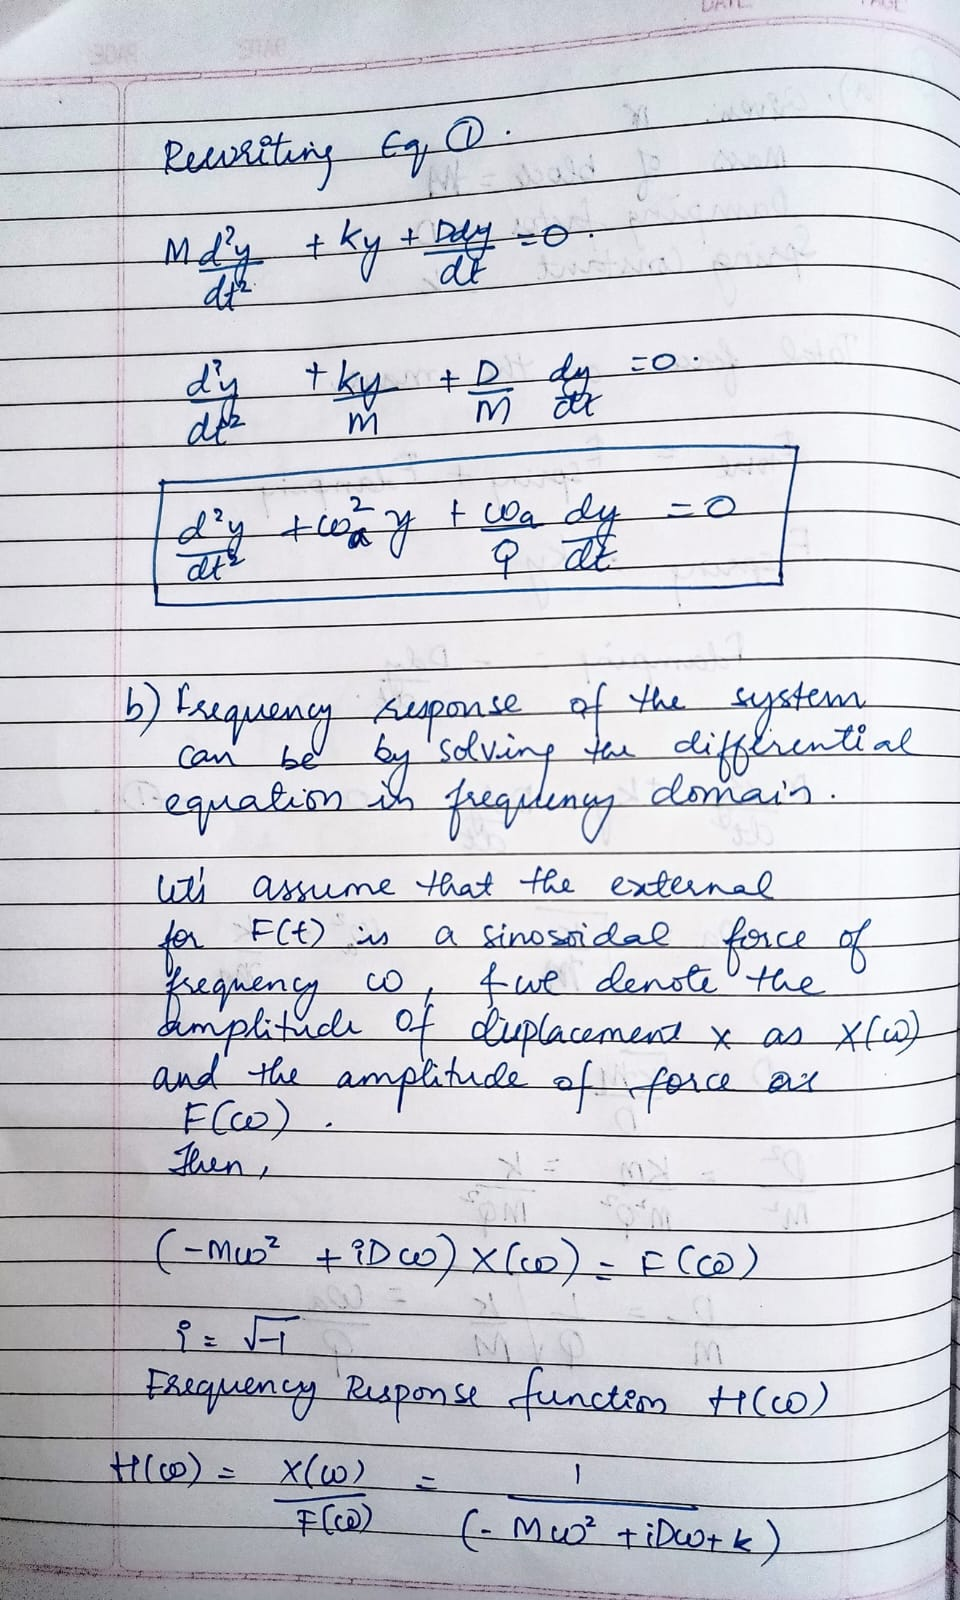 Rewriting Eq ①.
M d²y/dt² + ky + Ddy/dt = 0.
d²y/dt² + ky/m + D/m dy/dt = 0.
d²y/dt² + ωₐ² y + ωₐ/Q dy/dt = 0
b) Frequency response of the system
can be by solving the differential
equation in frequency domain.
Let's assume that the external
for F(t) is a sinosoidal force of
frequency ω, & we denote the
amplitude of displacement x as X(ω)
and the amplitude of force as
F(ω).
Then,
(-Mω² + iDω) X(ω) = F(ω)
i = √-1
Frequency Response function H(ω)
H(ω) = X(ω)/F(ω) = 1/(-Mω² + iDω + k)